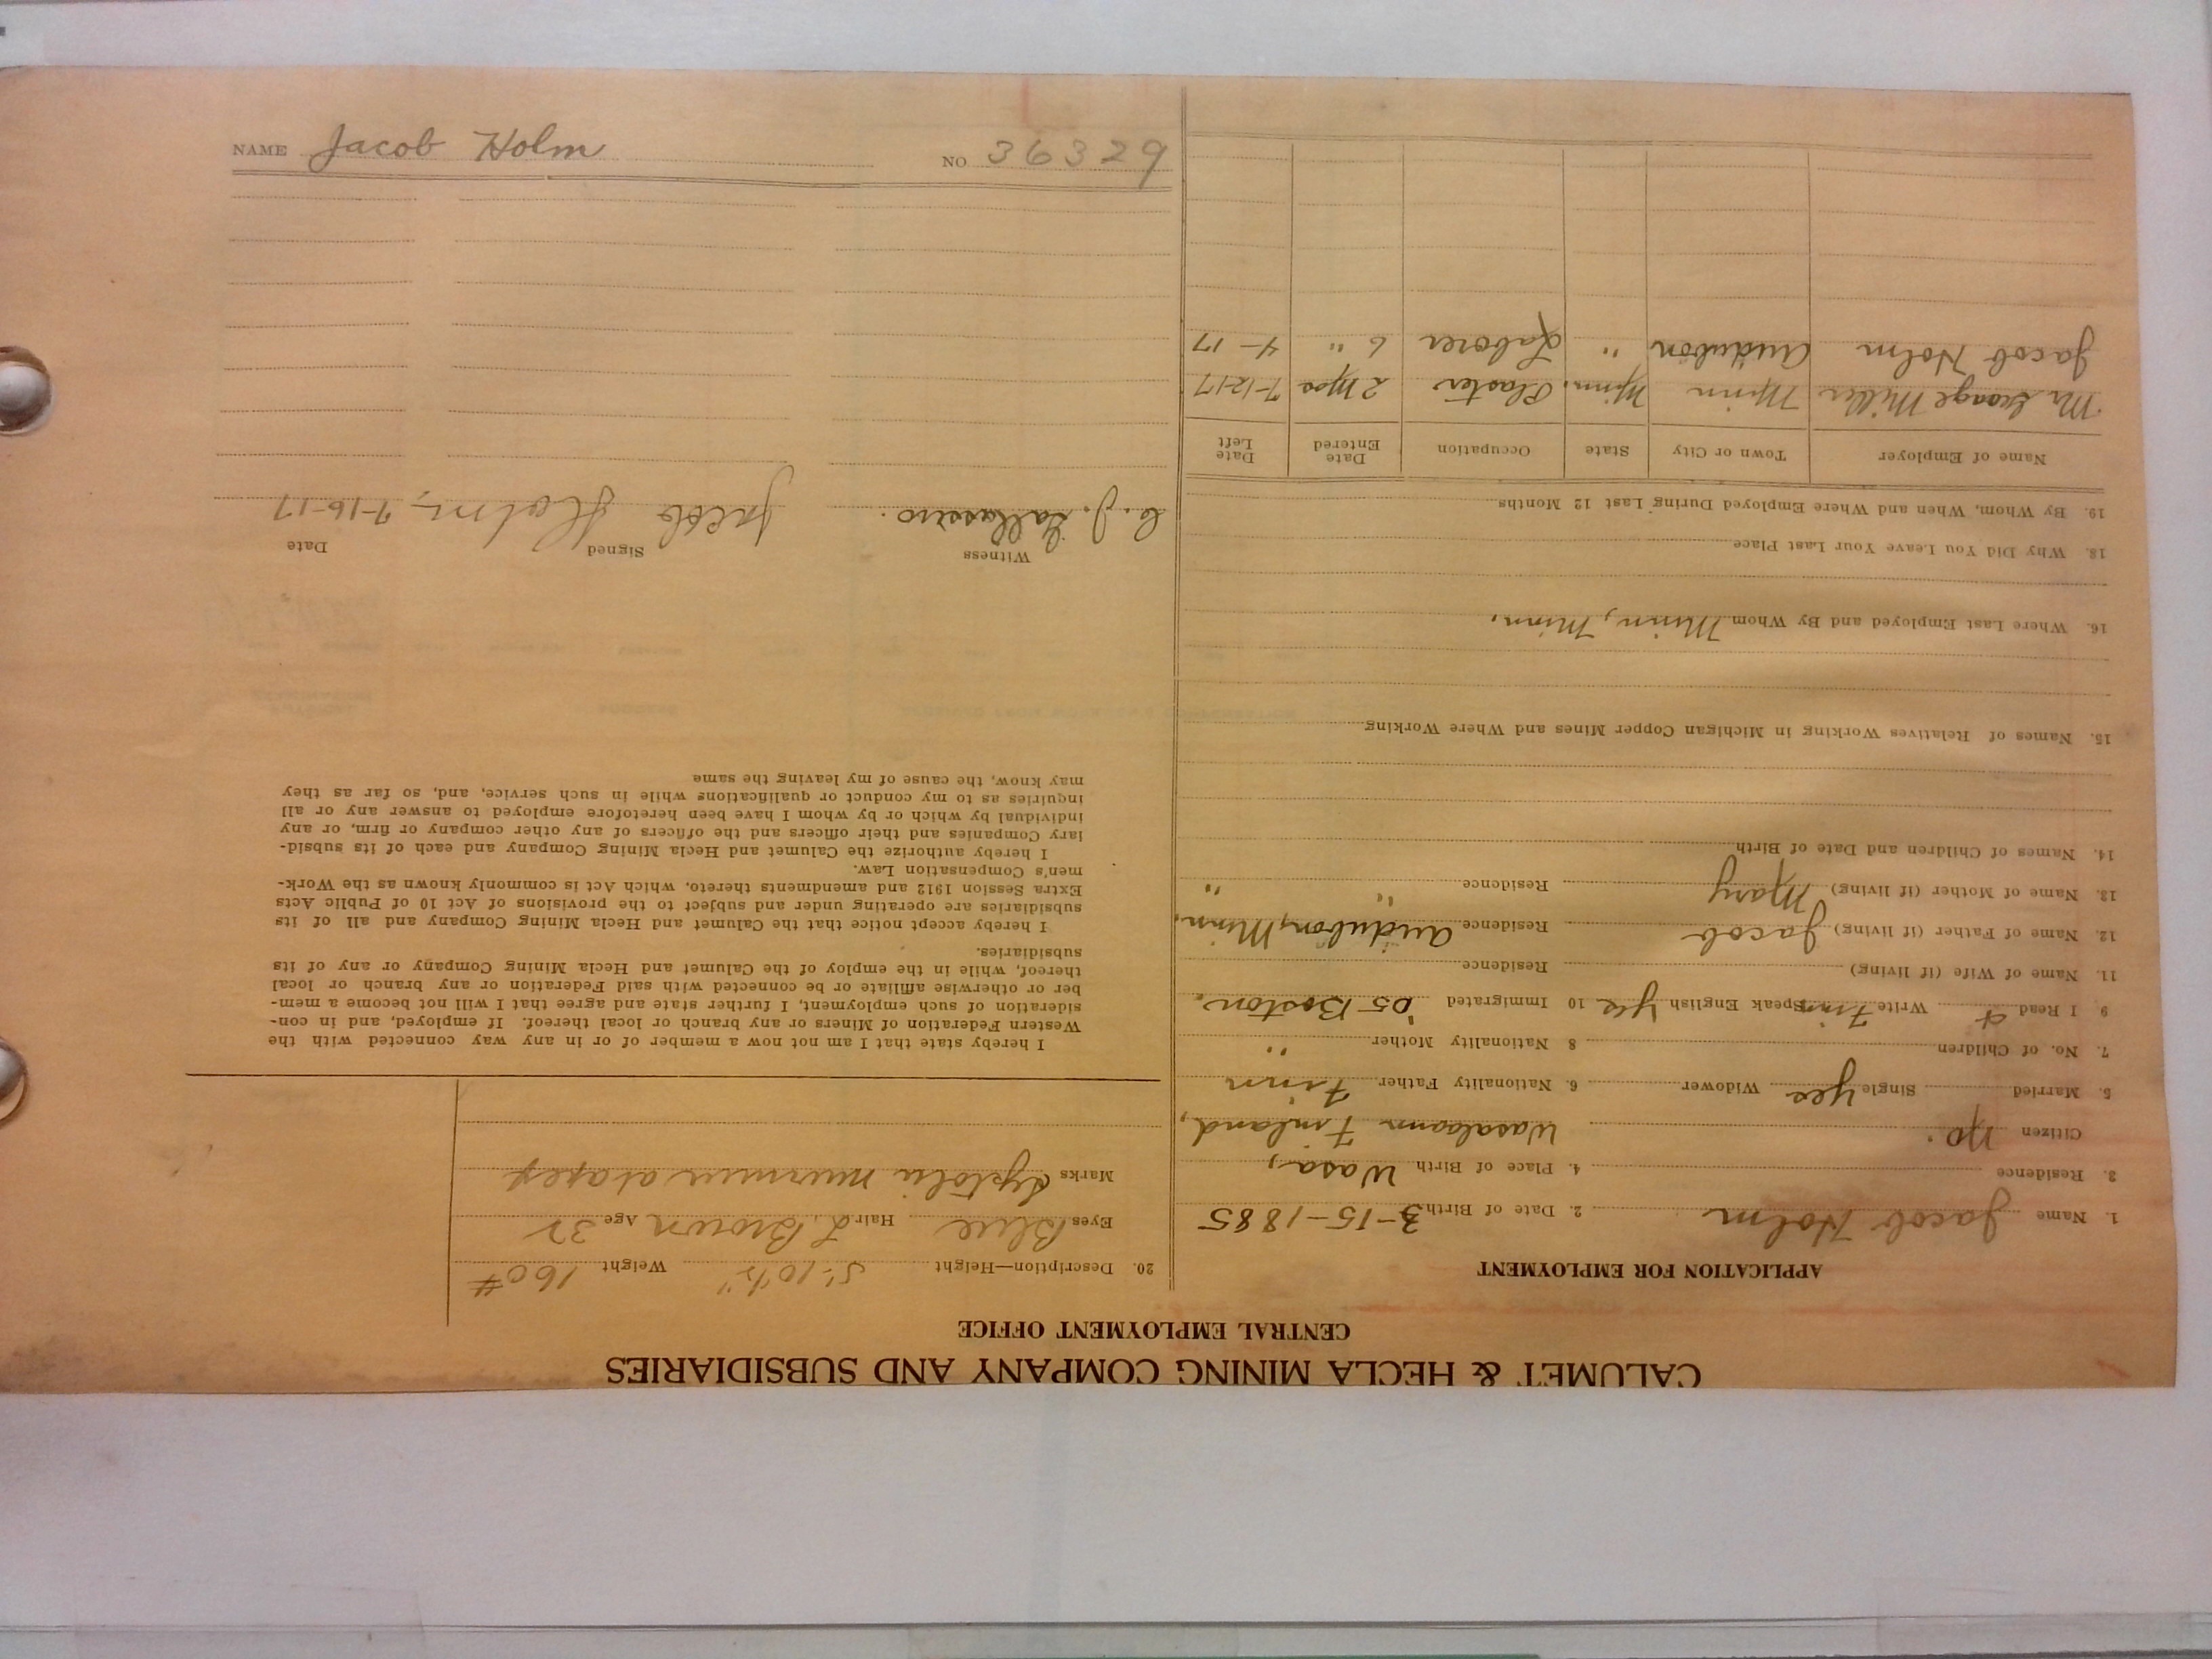 CALUMET & HECLA MINING COMPANY AND SUBSIDIARIES
CENTRAL EMPLOYMENT OFFICE
APPLICATION FOR EMPLOYMENT
1. Name Jacob Holm 2. Date of Birth 3-15-1885
3. Residence 4. Place of Birth Wasa,
Citizen No. Wasalaani Finland,
5. Married Single Yes Widower 6. Nationality Father Finn
7. No. of Children 8 Nationality Mother "
9 I Read + Write Finn Speak English Yes 10 Immigrated '05 Boston.
11. Name of Wife (if living) Residence
12. Name of Father (if living) Jacob Residence Audubon, Minn.
13. Name of Mother (if living) Mary Residence " "
14. Names of Children and Date of Birth
15. Names of Relatives Working in Michigan Copper Mines and Where Working
16. Where Last Employed and By Whom Minn, Minn.
18. Why Did You Leave Your Last Place
19. By Whom, When and Where Employed During Last 12 Months
Name of Employer Town or City State Occupation Date Entered Date Left
Mr. George Miller Minn Minn. Plaster 2 Mos 7-12-17
Jacob Holm Audubon " Laborer 6 " 4-17
20. Description—Height 5'-10½" Weight 160#
Eyes Blue Hair L. Brown Age 32
Marks
I hereby state that I am not now a member of or in any way connected with the
Western Federation of Miners or any branch or local thereof. If employed, and in con-
sideration of such employment, I further state and agree that I will not become a mem-
ber or otherwise affiliate or be connected with said Federation or any branch or local
thereof, while in the employ of the Calumet and Hecla Mining Company or any of its
subsidiaries.
I hereby accept notice that the Calumet and Hecla Mining Company and all of its
subsidiaries are operating under and subject to the provisions of Act 10 of Public Acts
Extra Session 1912 and amendments thereto, which Act is commonly known as the Work-
men's Compensation Law.
I hereby authorize the Calumet and Hecla Mining Company and each of its subsid-
iary Companies and their officers and the officers of any other company or firm, or any
individual by which or by whom I have been heretofore employed to answer any or all
inquiries as to my conduct or qualifications while in such service, and, so far as they
may know, the cause of my leaving the same
Witness Signed Date
C. J. Jacob Holm, 7-16-17
NAME Jacob Holm NO 36329